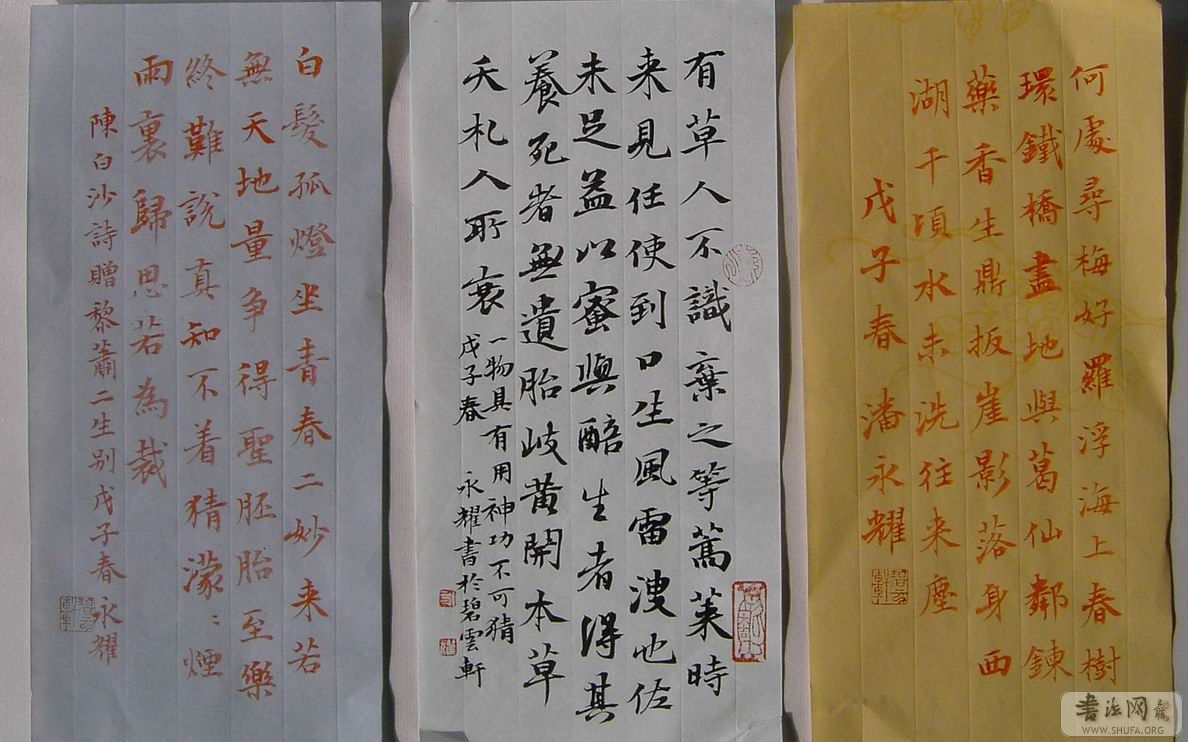 何處尋梅好羅浮海上春樹
環鐵橋盡地與葛仙鄰鍊
藥香生鼎扳崖影落身西
湖千頃水未洗往来塵
戊子春潘永耀
有草人不識棄之等蒿莱時
来見任使到口生風雷洩也佐
未足益以蜜與醅生者得其
養死者無遺胎岐黄開本草
夭札人所哀
一物具有用神功不可猜
戊子春 永耀書於碧雲軒
白髮孤燈坐青春二妙来若
無天地量争得聖胚胎至樂
終難說真知不着猜濛:煙
雨裏歸思若為裁
陳白沙詩贈黎蕭二生別戊子春永耀
书法网
WWW.SHUFA.ORG